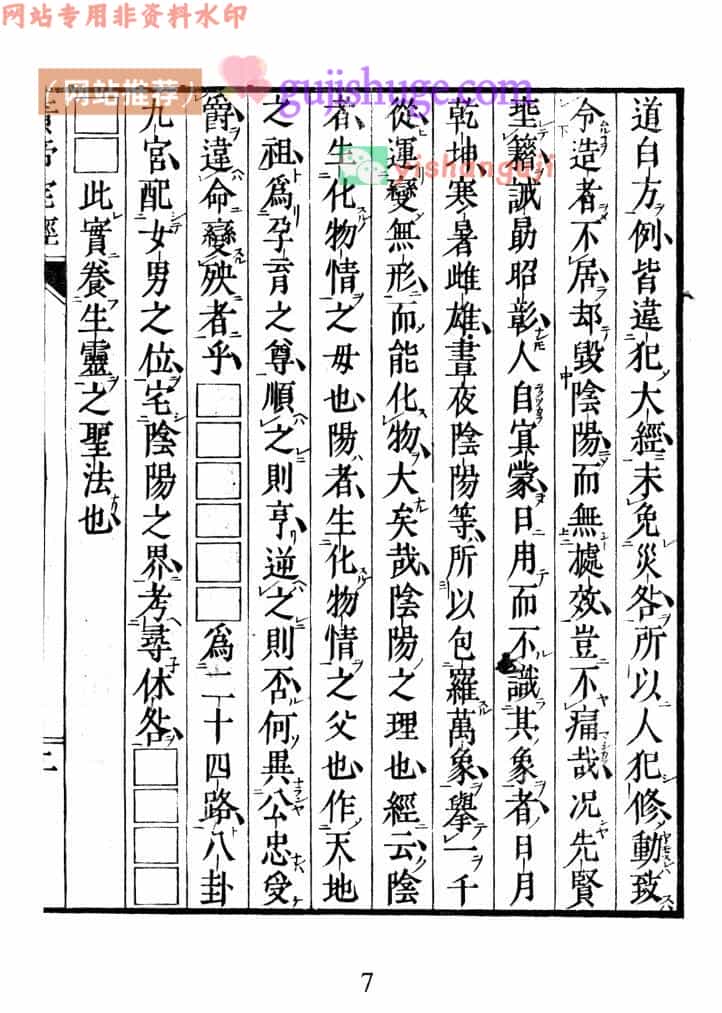 网站专用非资料水印
(网站推荐)
gujishuge.com
yishanguji
道白方例皆違犯大經未免災咎所以人犯修動致
令造者不居却毀陰陽而無據效豈不痛哉况先賢
垩籍誠最昭彰人自冥蒙日用而不識其象者日月
乾坤寒暑雌雄晝夜陰陽等所以包羅萬象擧一千
從運變無形而能化物大矣哉陰陽之理也經云陰
者生化物情之母也陽者生化物情之父也作天地
之祖爲孕育之尊順之則亨逆之則否何異公忠受
爵違命變殃者乎□□□□□□爲二十四路八卦
九宮配女男之位宅陰陽之界考尋休咎□□□□
□□此實養生靈之聖法也
黃帝宅經
二
7